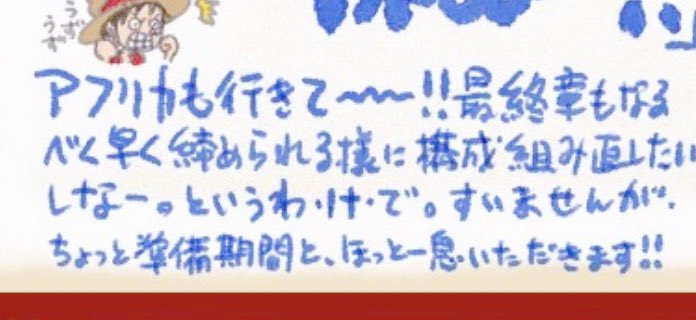 うずうず
アフリカも行きて〜〜〜!!最終章もなる
べく早く締められる様に構成組み直したい
しなー。というわ・け・で。すいませんが、
ちょっと準備期間と、ほっと一息いただきます!!